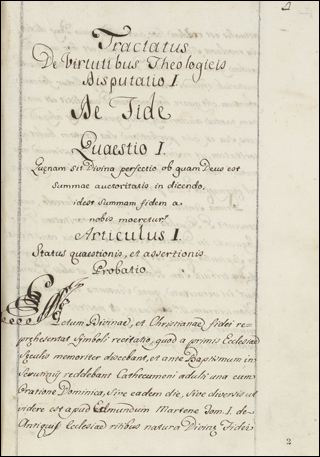 Tractatus
De Virtutibus Theologicis
Disputatio I.
De Fide
Quaestio I.
Quenam sit Divina perfectio ob quam Deus est
summae auctoritatis in dicendo,
idest summam fidem a
nobis moeretur?
Articulus I.
Status quaestionis, et assertionis
Probatio.
Divinae, et Christianae fidei re-
praesentat Symboli recitatio, quod a primis Ecclesiae
Seculis memoriter discebant, et ante Baptismum in
Scrutiniis reddebant Cathecumeni adulti una cum
Oratione Dominica, sive eadem die, sive diversis ut
videre est apud Edmundum Martene Tom. I. de
Antiquis Ecclesiae ritibus natura Divinae Fidei
2